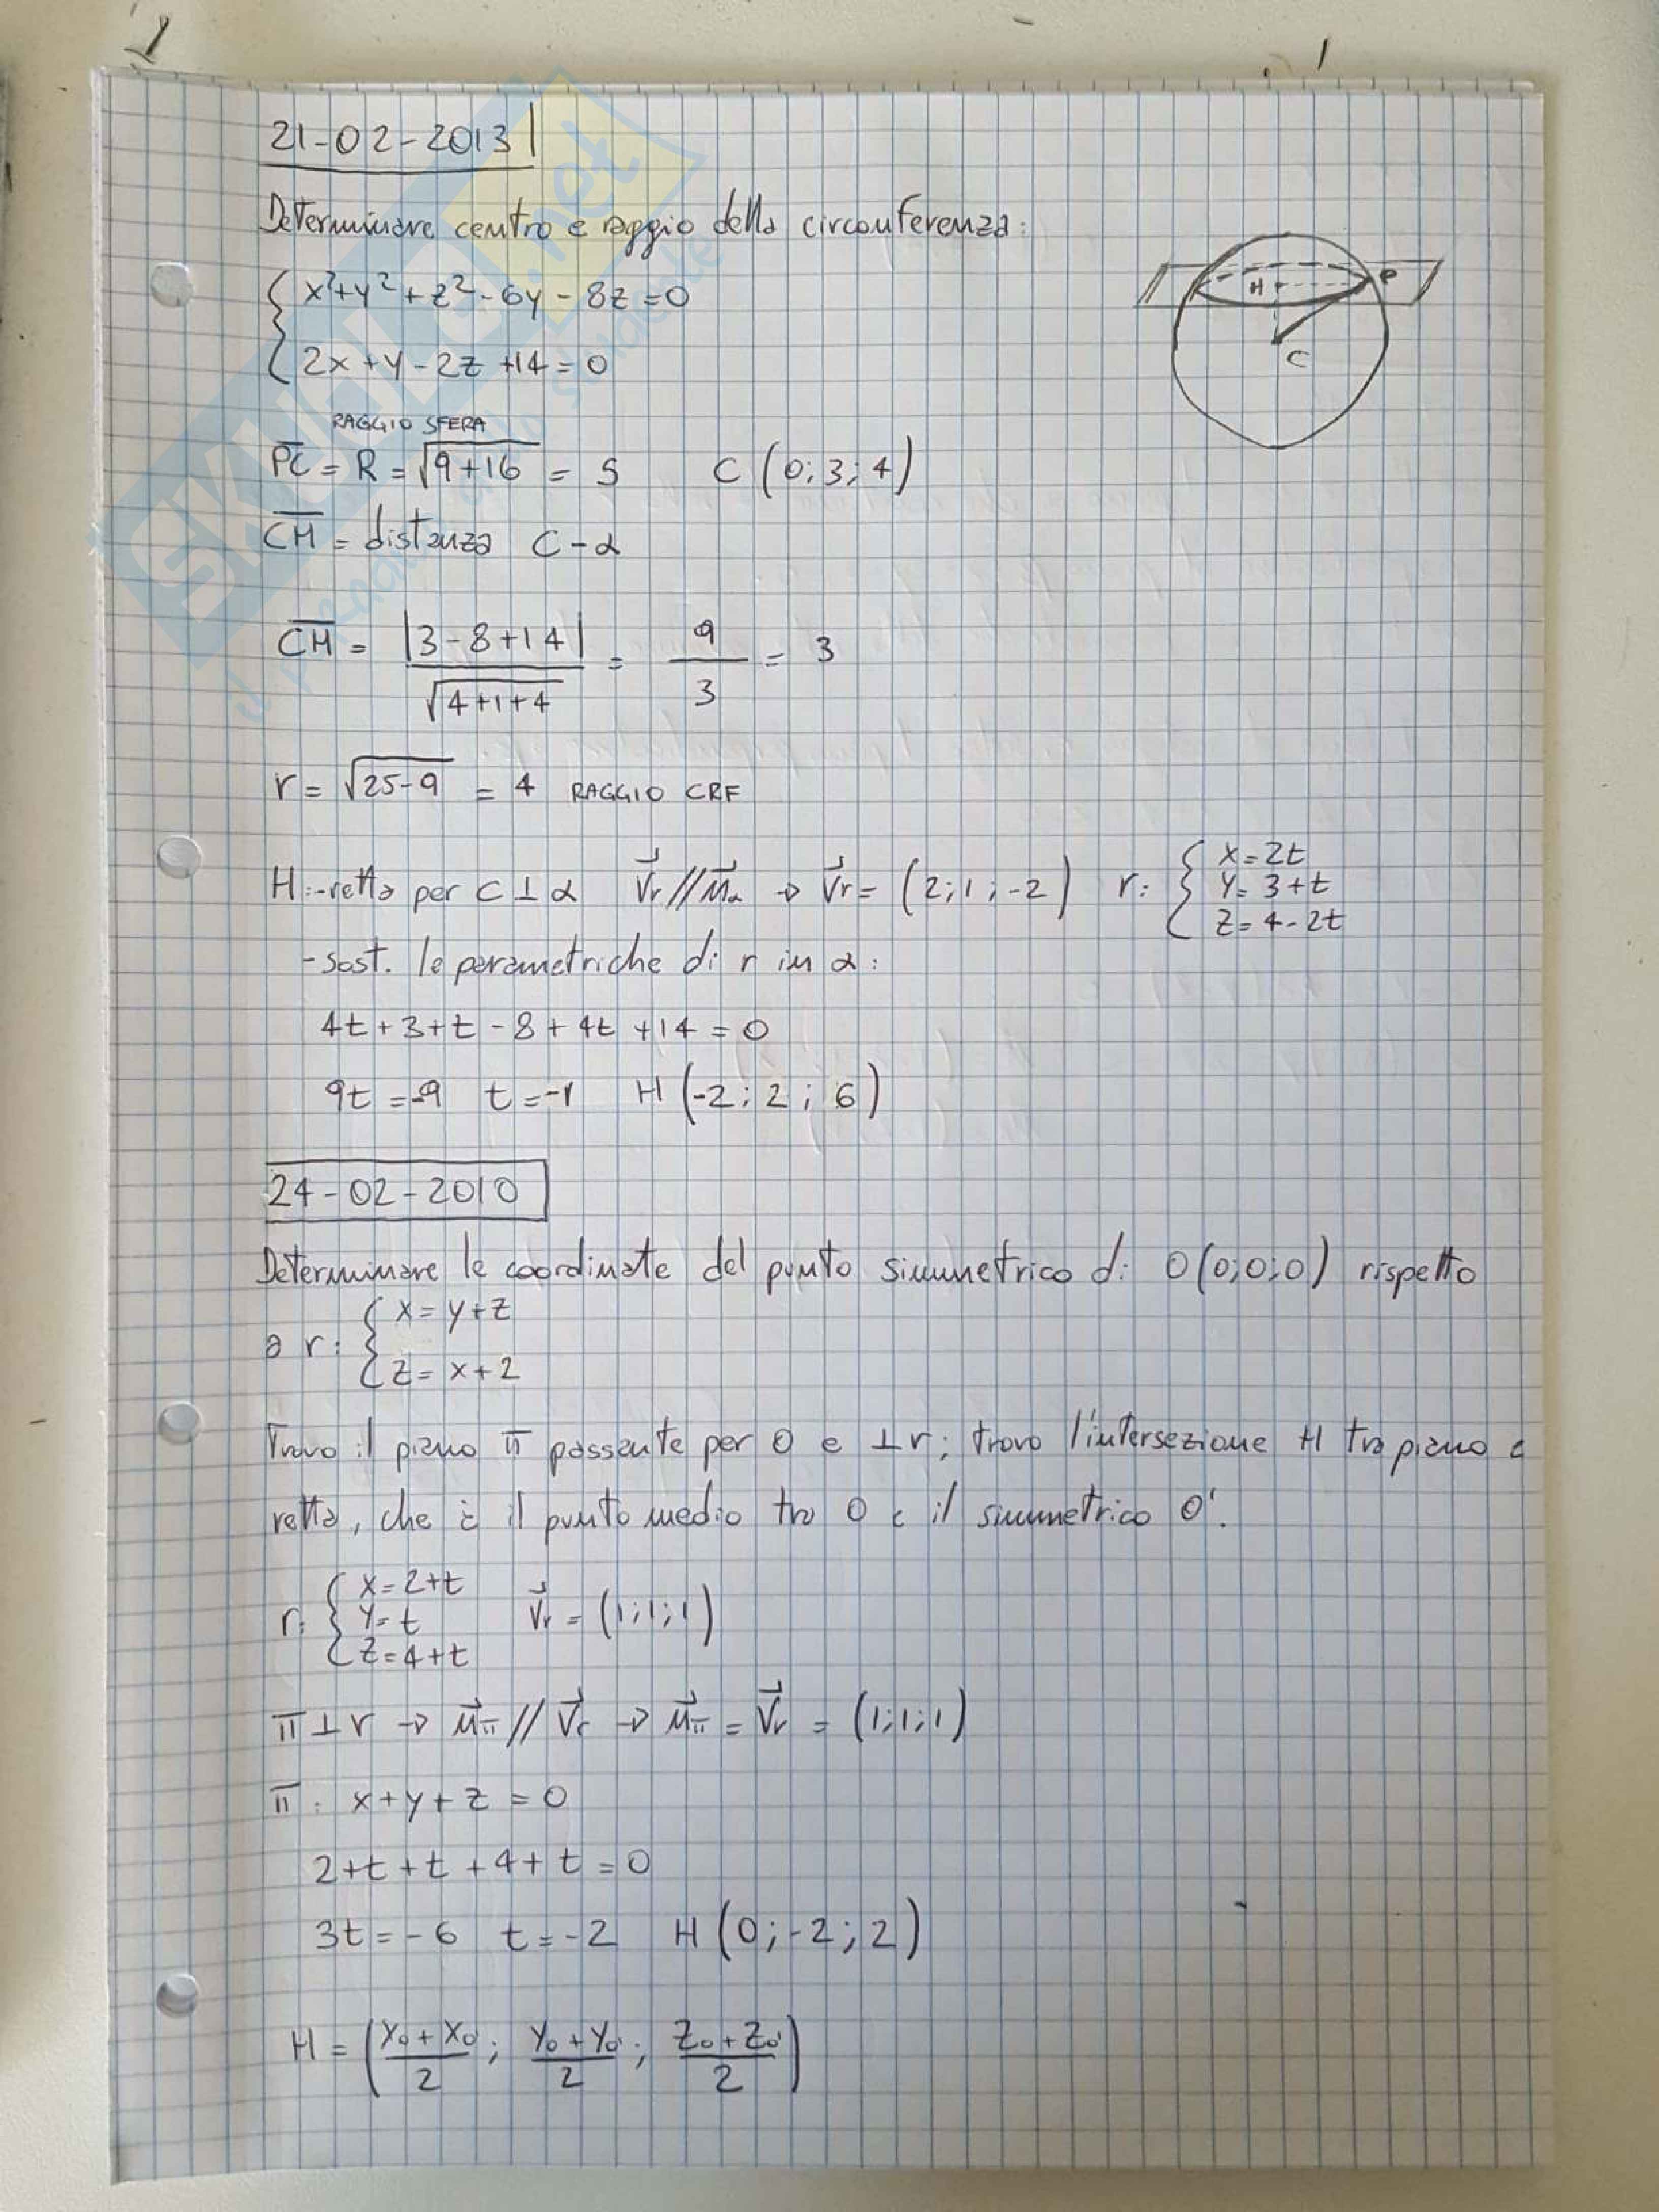 21-02-2013
Determinare centro e raggio della circonferenza:
{ x²+y²+z²-6y-8z=0
{ 2x+y-2z+14=0
H P
C
RAGGIO SFERA
PC = R = √(9+16) = 5 C (0; 3; 4)
CH = distanza C-α
CH = |3-8+14| / √(4+1+4) = 9/3 = 3
r = √(25-9) = 4 RAGGIO CRF
H:-retta per C ⊥ α Vr // nα → Vr = (2; 1; -2) r: { x=2t
y= 3+t
z= 4-2t
- sost. le parametriche di r in α:
4t+3+t-8+4t+14=0
9t=-9 t=-1 H (-2; 2; 6)
24-02-2010
Determinare le coordinate del punto simmetrico di O(0;0;0) rispetto
a r: { x= y+z
z= x+2
Trovo il piano π passante per O e ⊥ r; trovo l'intersezione H tra piano e
retta, che è il punto medio tra O e il simmetrico O'.
r: { x=2+t
y=t Vr = (1;1;1)
z=4+t
π ⊥ r → nπ // Vr → nπ = Vr = (1;1;1)
π: x+y+z=0
2+t+t+4+t=0
3t=-6 t=-2 H (0; -2; 2)
H = ( (x₀+x₀')/2 ; (y₀+y₀')/2 ; (z₀+z₀')/2 )
SKUOLA.net
il paradiso dello studente